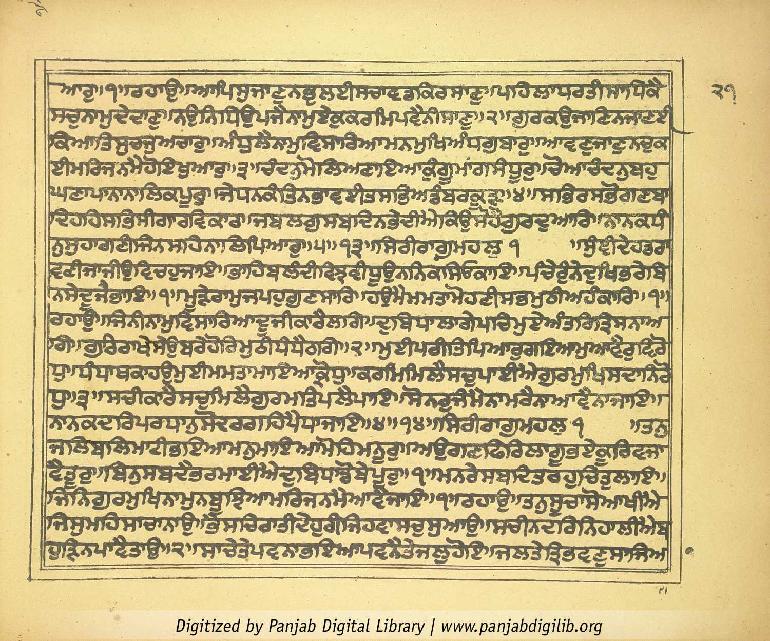 ੨੧
ਆਰੁ॥੧॥ਰਹਾਉ॥ਆਪਿਸੁਜਾਣੁਨਭੁਲਈਸਚਾਵਡਕਿਰਸਾਣੁ॥ਪਹਿਲਾਧਰਤੀਸਾਧਿਕੈ
ਸਚੁਨਾਮੁਦੇਦਾਣੁ॥ਨਉਨਿਧਿਉਪਜੈਨਾਮੁਏਕੁਕਰਮਿਪਵੈਨੀਸਾਣੁ॥੨॥ਗੁਰਕਉਜਾਣਿਨਜਾਣਈ
ਕਿਆਤਿਸੁਚਜੁਅਚਾਰੁ॥ਅੰਧੁਲੈਨਾਮੁਵਿਸਾਰਿਆਮਨਮੁਖਿਅੰਧਗੁਬਾਰੁ॥ਆਵਣੁਜਾਣੁਨਚੁਕ
ਈਮਰਿਜਨਮੈਹੋਇਖੁਆਰੁ॥੩॥ਚੰਦਨੁਮੋਲਿਅਣਾਇਆਕੁੰਗੂਮਾਂਗਸੰਧੂਰੁ॥ਚੋਆਚੰਦਨੁਬਹੁ
ਘਣਾਪਾਨਾਨਾਲਿਕਪੂਰੁ॥ਜੇਧਨਕੰਤਿਨਭਾਵਈਤਸਭਿਅਡੰਬਰਕੂੜੁ॥੪॥ਸਭਿਰਸਭੋਗਣਬਾ
ਦਿਹਹਿਸਭਿਸੀਗਾਰਵਿਕਾਰ॥ਜਬਲਗੁਸਬਦਿਨਭੇਦੀਐਕਿਉਸੋਹੈਗੁਰਦੁਆਰਿ॥ਨਾਨਕਧੰ
ਨੁਸੁਹਾਗਣੀਜਿਨਸਹਨਾਲਿਪਿਆਰੁ॥੫॥੧੩॥ਸਿਰੀਰਾਗੁਮਹਲੁ ੧ ॥ਸੁੰਞੀਦੇਹਡਰਾ
ਵਣੀਜਾਜੀਉਵਿਚਹੁਜਾਇ॥ਭਾਹਿਬਲੰਦੀਵਿਝਵੀਧੂਉਨਨਿਕਸਿਓਕਾਇ॥ਪੰਚੇਰੁੰਨੇਦੁਖਿਭਰੇਬਿ
ਨਸੇਦੂਜੈਭਾਇ॥੧॥ਮੂੜੇਰਾਮੁਜਪਹੁਗੁਣਸਾਰਿ॥ਹਉਮੈਮਮਤਾਮੋਹਣੀਸਭਮੁਠੀਅਹੰਕਾਰਿ॥੧॥
ਰਹਾਉ॥ਜਿਨੀਨਾਮੁਵਿਸਾਰਿਆਦੂਜੀਕਾਰੈਲਗਿ॥ਦੁਬਿਧਾਲਾਗੇਪਚਿਮੁਏਅੰਤਰਿਤ੍ਰਿਸਨਾਅ
ਗਿ॥ਗੁਰਿਰਾਖੇਸੇਉਬਰੇਹੋਰਿਮੁਠੀਧੰਧੈਠਗਿ॥੨॥ਮੁਈਪਰੀਤਿਪਿਆਰੁਗਇਆਮੁਆਵੈਰੁਵਿਰੋ
ਧੁ॥ਧੰਧਾਥਕਾਹਉਮੁਈਮਮਤਾਮਾਇਆਕ੍ਰੋਧੁ॥ਕਰਮਿਮਿਲੈਸਚੁਪਾਈਐਗੁਰਮੁਖਿਸਦਾਨਿਰੋ
ਧੁ॥੩॥ਸਚੀਕਾਰੈਸਚੁਮਿਲੈਗੁਰਮਤਿਪਲੈਪਾਇ॥ਸੋਨਰੁਜੰਮੈਨਾਮਰੈਨਾਆਵੈਨਾਜਾਇ॥
ਨਾਨਕਦਰਿਪਰਧਾਨੁਸੋਦਰਗਹਿਪੈਧਾਜਾਇ॥੪॥੧੪॥ਸਿਰੀਰਾਗੁਮਹਲੁ ੧ ॥ਤਨੁ
ਜਲਿਬਲਿਮਾਟੀਭਇਆਮਨੁਮਾਇਆਮੋਹਿਮਨੂਰੁ॥ਅਉਗਣਫਿਰਿਲਾਗੂਭਏਕੂਰਿਵਜਾ
ਵੈਤੂਰੁ॥ਬਿਨੁਸਬਦੈਭਰਮਾਈਐਦੁਬਿਧਾਡੋਬੇਪੂਰੁ॥੧॥ਮਨਰੇਸਬਦਿਤਰਹੁਚਿਤੁਲਾਇ॥
ਜਿਨਿਗੁਰਮੁਖਿਨਾਮੁਨਬੂਝਿਆਮਰਿਜਨਮੈਆਵੈਜਾਇ॥੧॥ਰਹਾਉ॥ਤਨੁਸੂਚਾਸੋਆਖੀਐ
ਜਿਸੁਮਹਿਸਾਚਾਨਾਉ॥ਭੈਸਚਿਰਾਤੀਦੇਹੁਰੀਜਿਹਵਾਸਚੁਸੁਆਉ॥ਸਚੀਨਦਰਿਨਿਹਾਲੀਐਬ
ਹੁੜਿਨਪਾਵੈਤਾਉ॥੨॥ਸਾਚੇਤੇਪਵਨਾਭਇਆਪਵਨੈਤੇਜਲੁਹੋਇ॥ਜਲਤੇਤ੍ਰਿਭਵਣੁਸਾਜਿਅ
Digitized by Panjab Digital Library | www.panjabdigilib.org